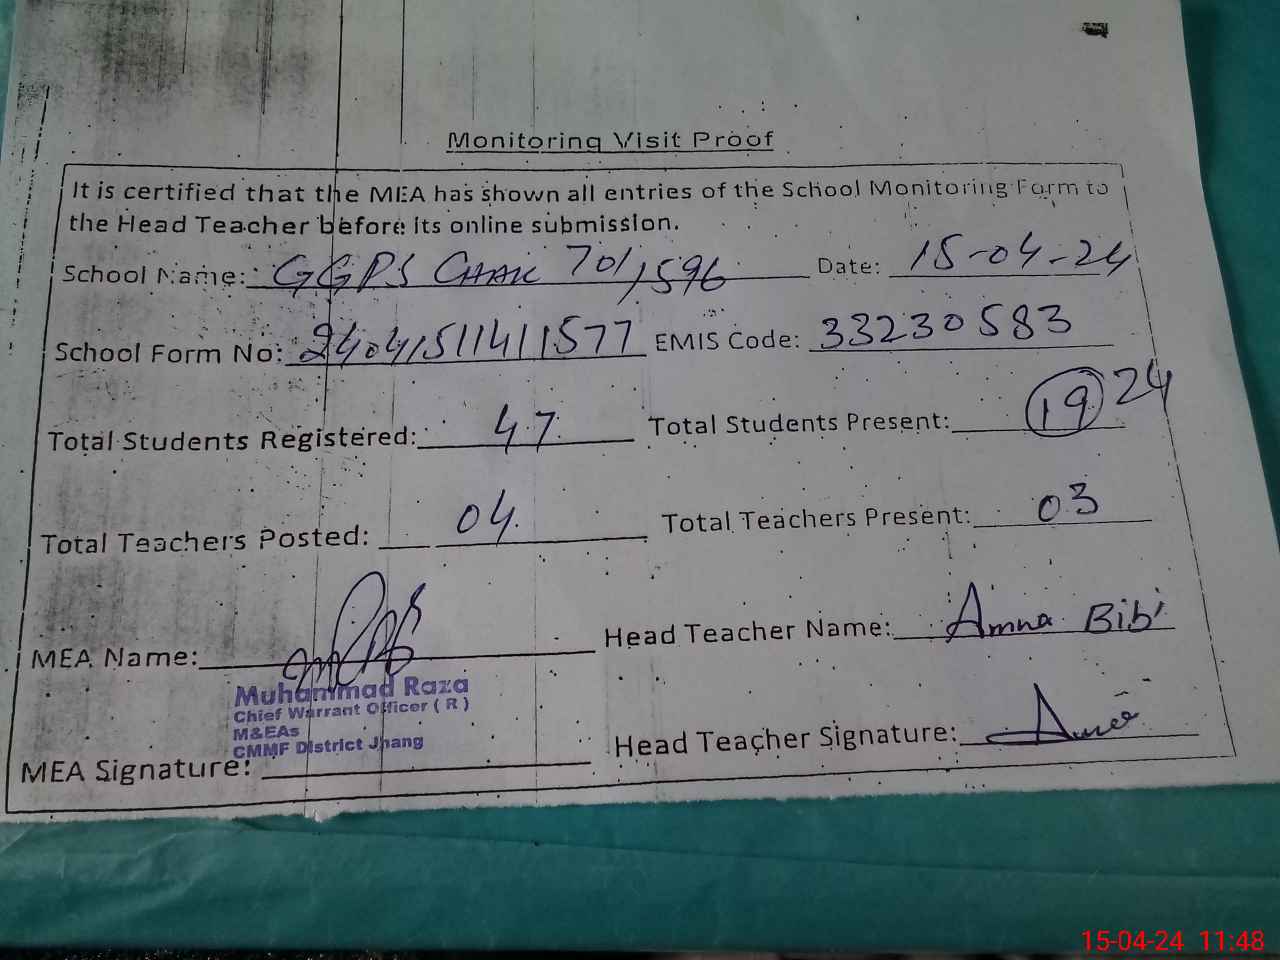 Monitoring Visit Proof
It is certified that the MEA has shown all entries of the School Monitoring Form to
the Head Teacher before its online submission.
School Name: GGPS CHAK 701/596 Date: 15-04-24
School Form No: 24041511411577 EMIS Code: 33230583
Total Students Registered: 47 Total Students Present: 19 24
Total Teachers Posted: 04 Total Teachers Present: 03
MEA Name: Head Teacher Name: Amna Bibi
Muhammad Raza
Chief Warrant Officer ( R )
M&EAs
CMMF District Jhang
MEA Signature: Head Teacher Signature:
15-04-24 11:48